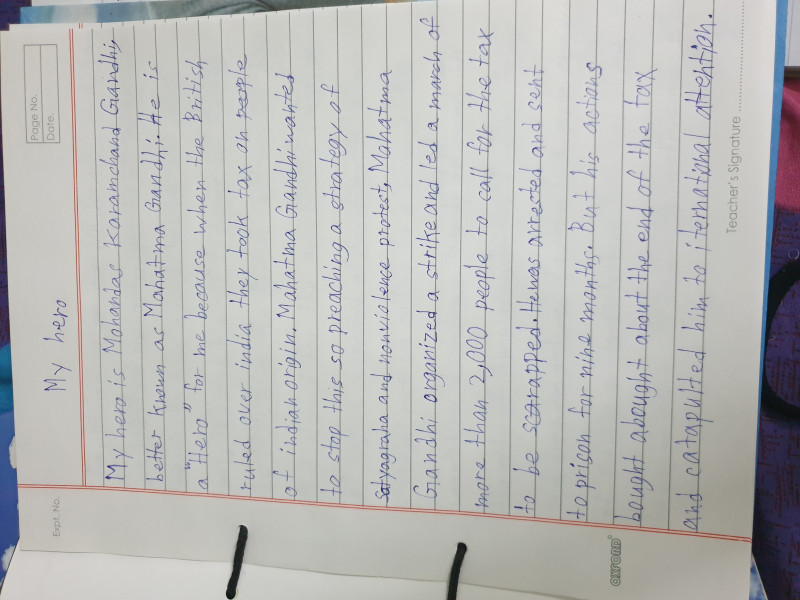 Page No.
Date.
Expt. No.
My hero
My hero is Mohandas Karamchand Gandhi,
better known as Mahatma Gandhi. He is
a "Hero" for me because when the British
ruled over india they took tax on people
of indian origin. Mahatma Gandhi wanted
to stop this so preaching a strategy of
satyagraha and nonviolence protest, Mahatma
Gandhi organized a strike and led a march of
more than 2,000 people to call for the tax
to be scarapped. He was arrested and sent
to prison for nine months. But his actions
bought abought about the end of the tax
and catapulted him to iternational attention.
OXFORD
Teacher's Signature